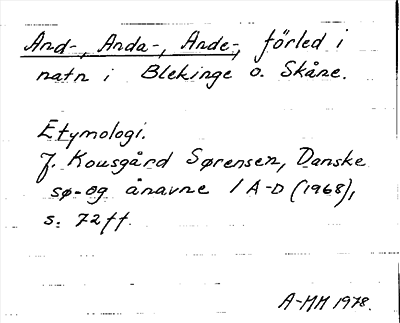 And-, Anda-, Ande-, förled i
natn i Blekinge o. Skåne.
Etymologi.
J. Kousgård Sørensen, Danske
sø- og ånavne 1 A-D (1968),
s. 72 ff.
A-MM 1978.